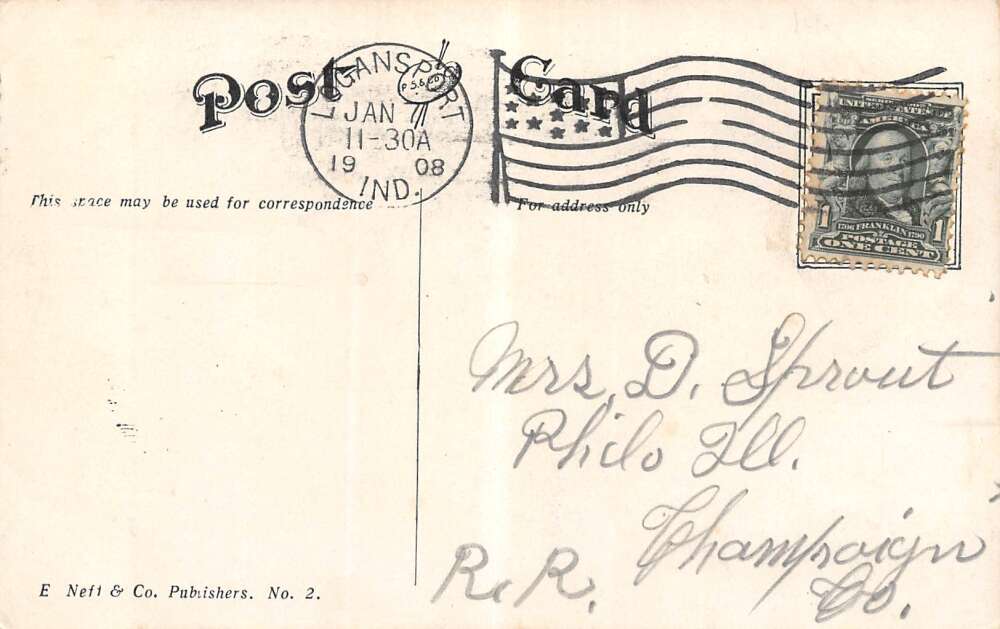 Post Card
LOGANSPORT
JAN 7
11-30A
19 08
IND.
UNITED STATES OF
AMERICA
1 1706 FRANKLIN 1790 1
POSTAGE
ONE CENT
This space may be used for correspondence
For address only
Mrs. D. Sprout
Philo Ill.
Champaign
Co.
R. R.
E Neff & Co. Publishers. No. 2.